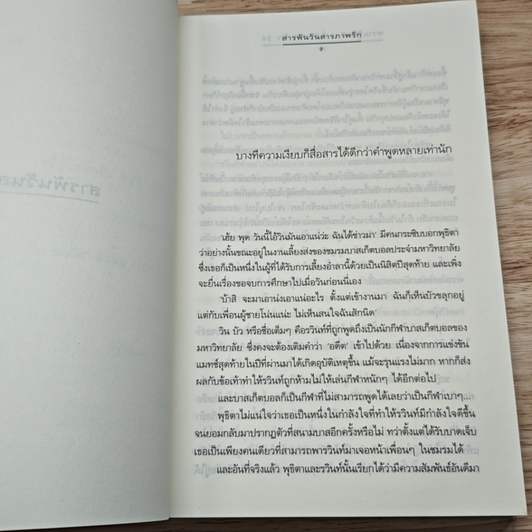 สารพันวันสารภาพรัก
บางทีความเงียบก็สื่อสารได้ดีกว่าคำพูดหลายเท่านัก
'เฮ้ย พุด วันนี้ไอ้วินมันเอาแน่ว่ะ ฉันได้ข่าวมา' มีคนกระซิบบอกพุธิตา
ว่าอย่างนั้นขณะอยู่ในงานเลี้ยงส่งของชมรมบาสเกตบอลประจำมหาวิทยาลัย
ซึ่งเธอก็เป็นหนึ่งในผู้ที่ได้รับการเลี้ยงอำลานี้ด้วยเป็นนิสิตปีสุดท้าย และเพิ่ง
จะยื่นเรื่องขอจบการศึกษาไปเมื่อวันก่อนนี่เอง
'บ้าสิ จะมาเอาน่งเอาแน่อะไร ตั้งแต่เข้างานมา ฉันก็เห็นบัวขลุกอยู่
แต่กับเพื่อนผู้ชายโน่นแน่ะ ไม่เห็นสนใจฉันสักนิด'
วิน บัว หรือชื่อเต็มๆ คือรวินท์ที่ถูกพูดถึงเป็นนักกีฬาบาสเกตบอลของ
มหาวิทยาลัย ซึ่งคงจะต้องเติมคำว่า 'อดีต' เข้าไปด้วย เนื่องจากการแข่งขัน
แมทช์สุดท้ายในปีที่ผ่านมาได้เกิดอุบัติเหตุขึ้น แม้จะรุนแรงไม่มาก หากก็ส่ง
ผลกับข้อเท้าทำให้รวินท์ถูกห้ามไม่ให้เล่นกีฬาหนักๆ ได้อีกต่อไป
และบาสเกตบอลก็เป็นกีฬาที่ไม่สามารถพูดได้เลยว่าเป็นกีฬาเบาๆ...
พุธิตาไม่แน่ใจว่าเธอเป็นหนึ่งในกำลังใจที่ทำให้รวินท์มีกำลังใจดีขึ้น
จนย่อมกลับมาปรากฏตัวที่สนามบาสอีกครั้งหรือไม่ ทว่าตั้งแต่ได้รับบาดเจ็บ
เธอเป็นเพียงคนเดียวที่สามารถพารวินท์มาเจอหน้าเพื่อนๆ ในชมรมได้
และอันที่จริงแล้ว พุธิตาและรวินท์นั้นเรียกได้ว่ามีความสัมพันธ์อันดีมา